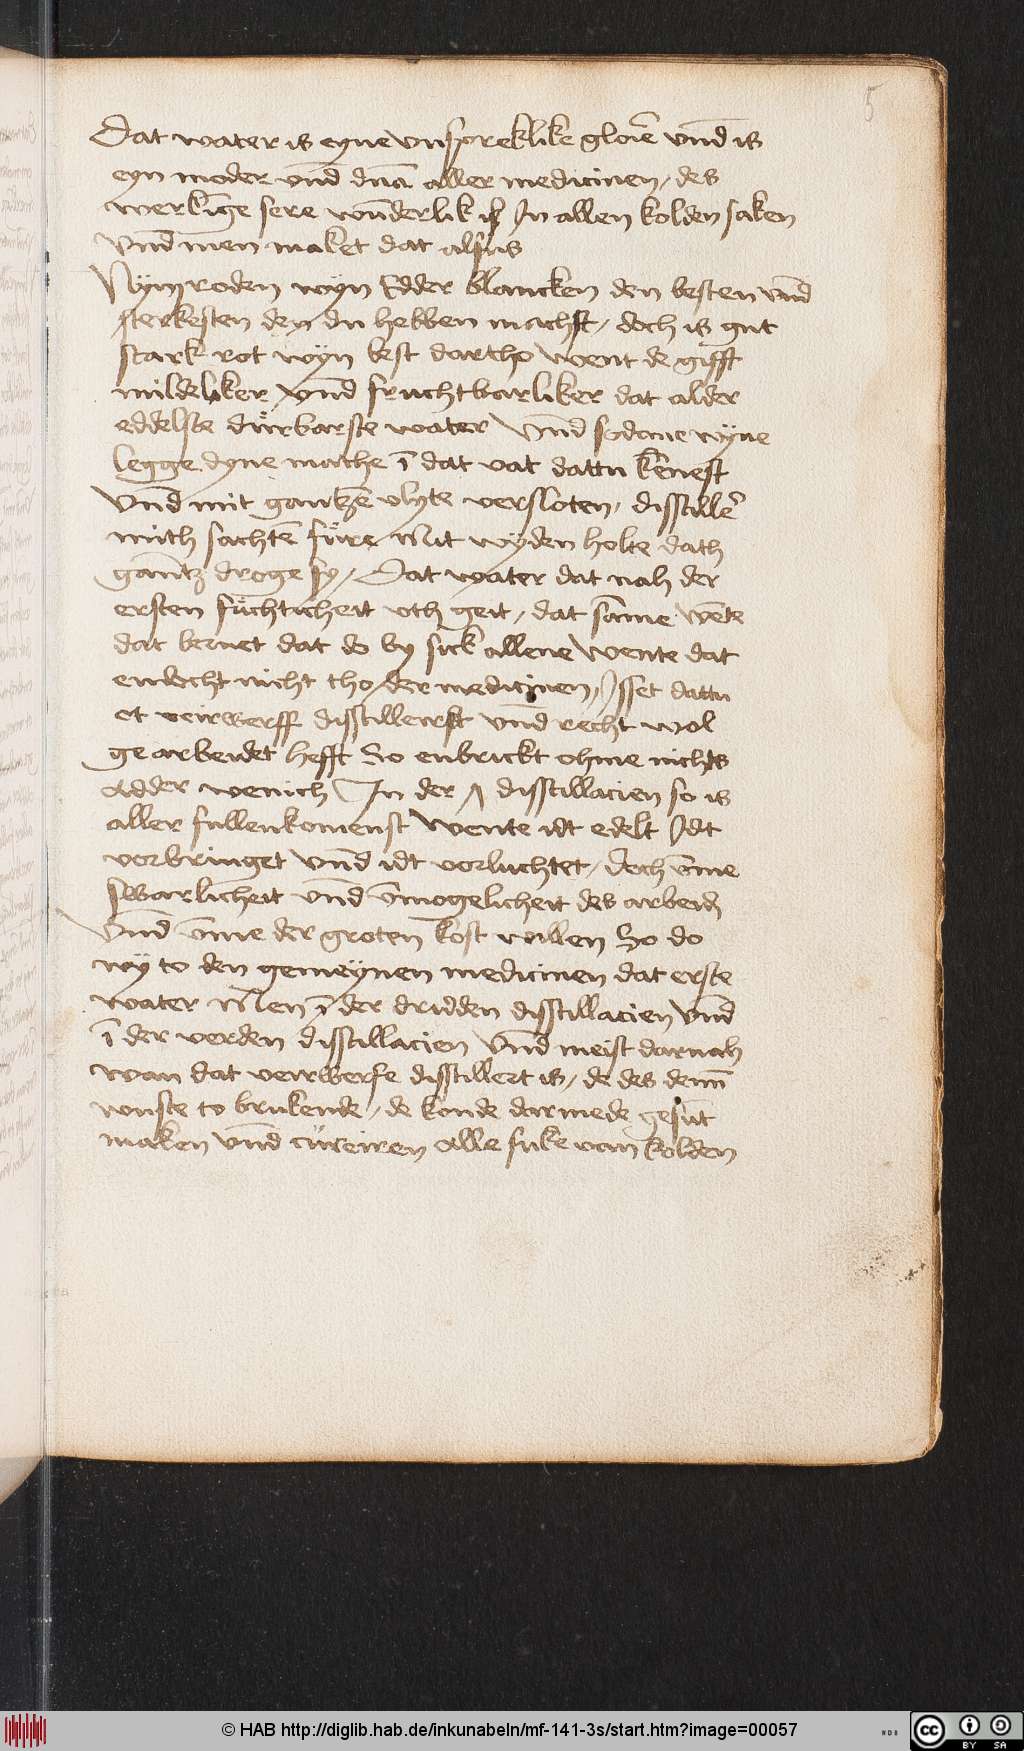 5
Dat water is eyne vnspreklike glorie vnd is
eyn moder vnd dna aller medicinen, des
werkinge sere wunderlik is Jn allen kolden saken
Vnd men maket dat alsus
Nym roden wyn Edder blancken den besten vnd
sterkesten den du hebben machst, doch is gut
stark rot wyn best dartho Went de gifft
mildeliker vnd fruchtbarliker dat alder
eddelste durbarste water Vnd sodane wyne
legge dyne mathe ī dat vat dattu kēnest
Vnd mit gantzē vlyte versloten, disstillēr
mith sachtē fure Mit wyden holte dath
gantz droge sy, Dat water dat nah der
ersten fuchticheit vth geit, dat same wēte
dat bernet dat do by sick allene Wente dat
endocht nicht tho der medicinen, Jsset dattu
et veirwerff disstilleirst vnd recht wol
gearbeidet hefft So enbrickt ohme nichts
adder wenich Jn der disstillacien so is
aller fullenkomenst Wente idt edelt Jdt
vorbringet vnd idt vorluchtet, Doch vmme
swarlicheit vnd vnmogelicheit des arbeid
Vnd vmme der groten kost willen So do
wy to den gemeynen medicinen dat erste
water Men ī der drudden disstillacien vnd
ī der verden disstillacien Vnd meist darnah
wan dat veirwerfe disstillert is, de des denn
wuste to brukende, de konde darmede gesunt
maken vnd cureiren alle suke van kolden
© HAB http://diglib.hab.de/inkunabeln/mf-141-3s/start.htm?image=00057
cc BY SA